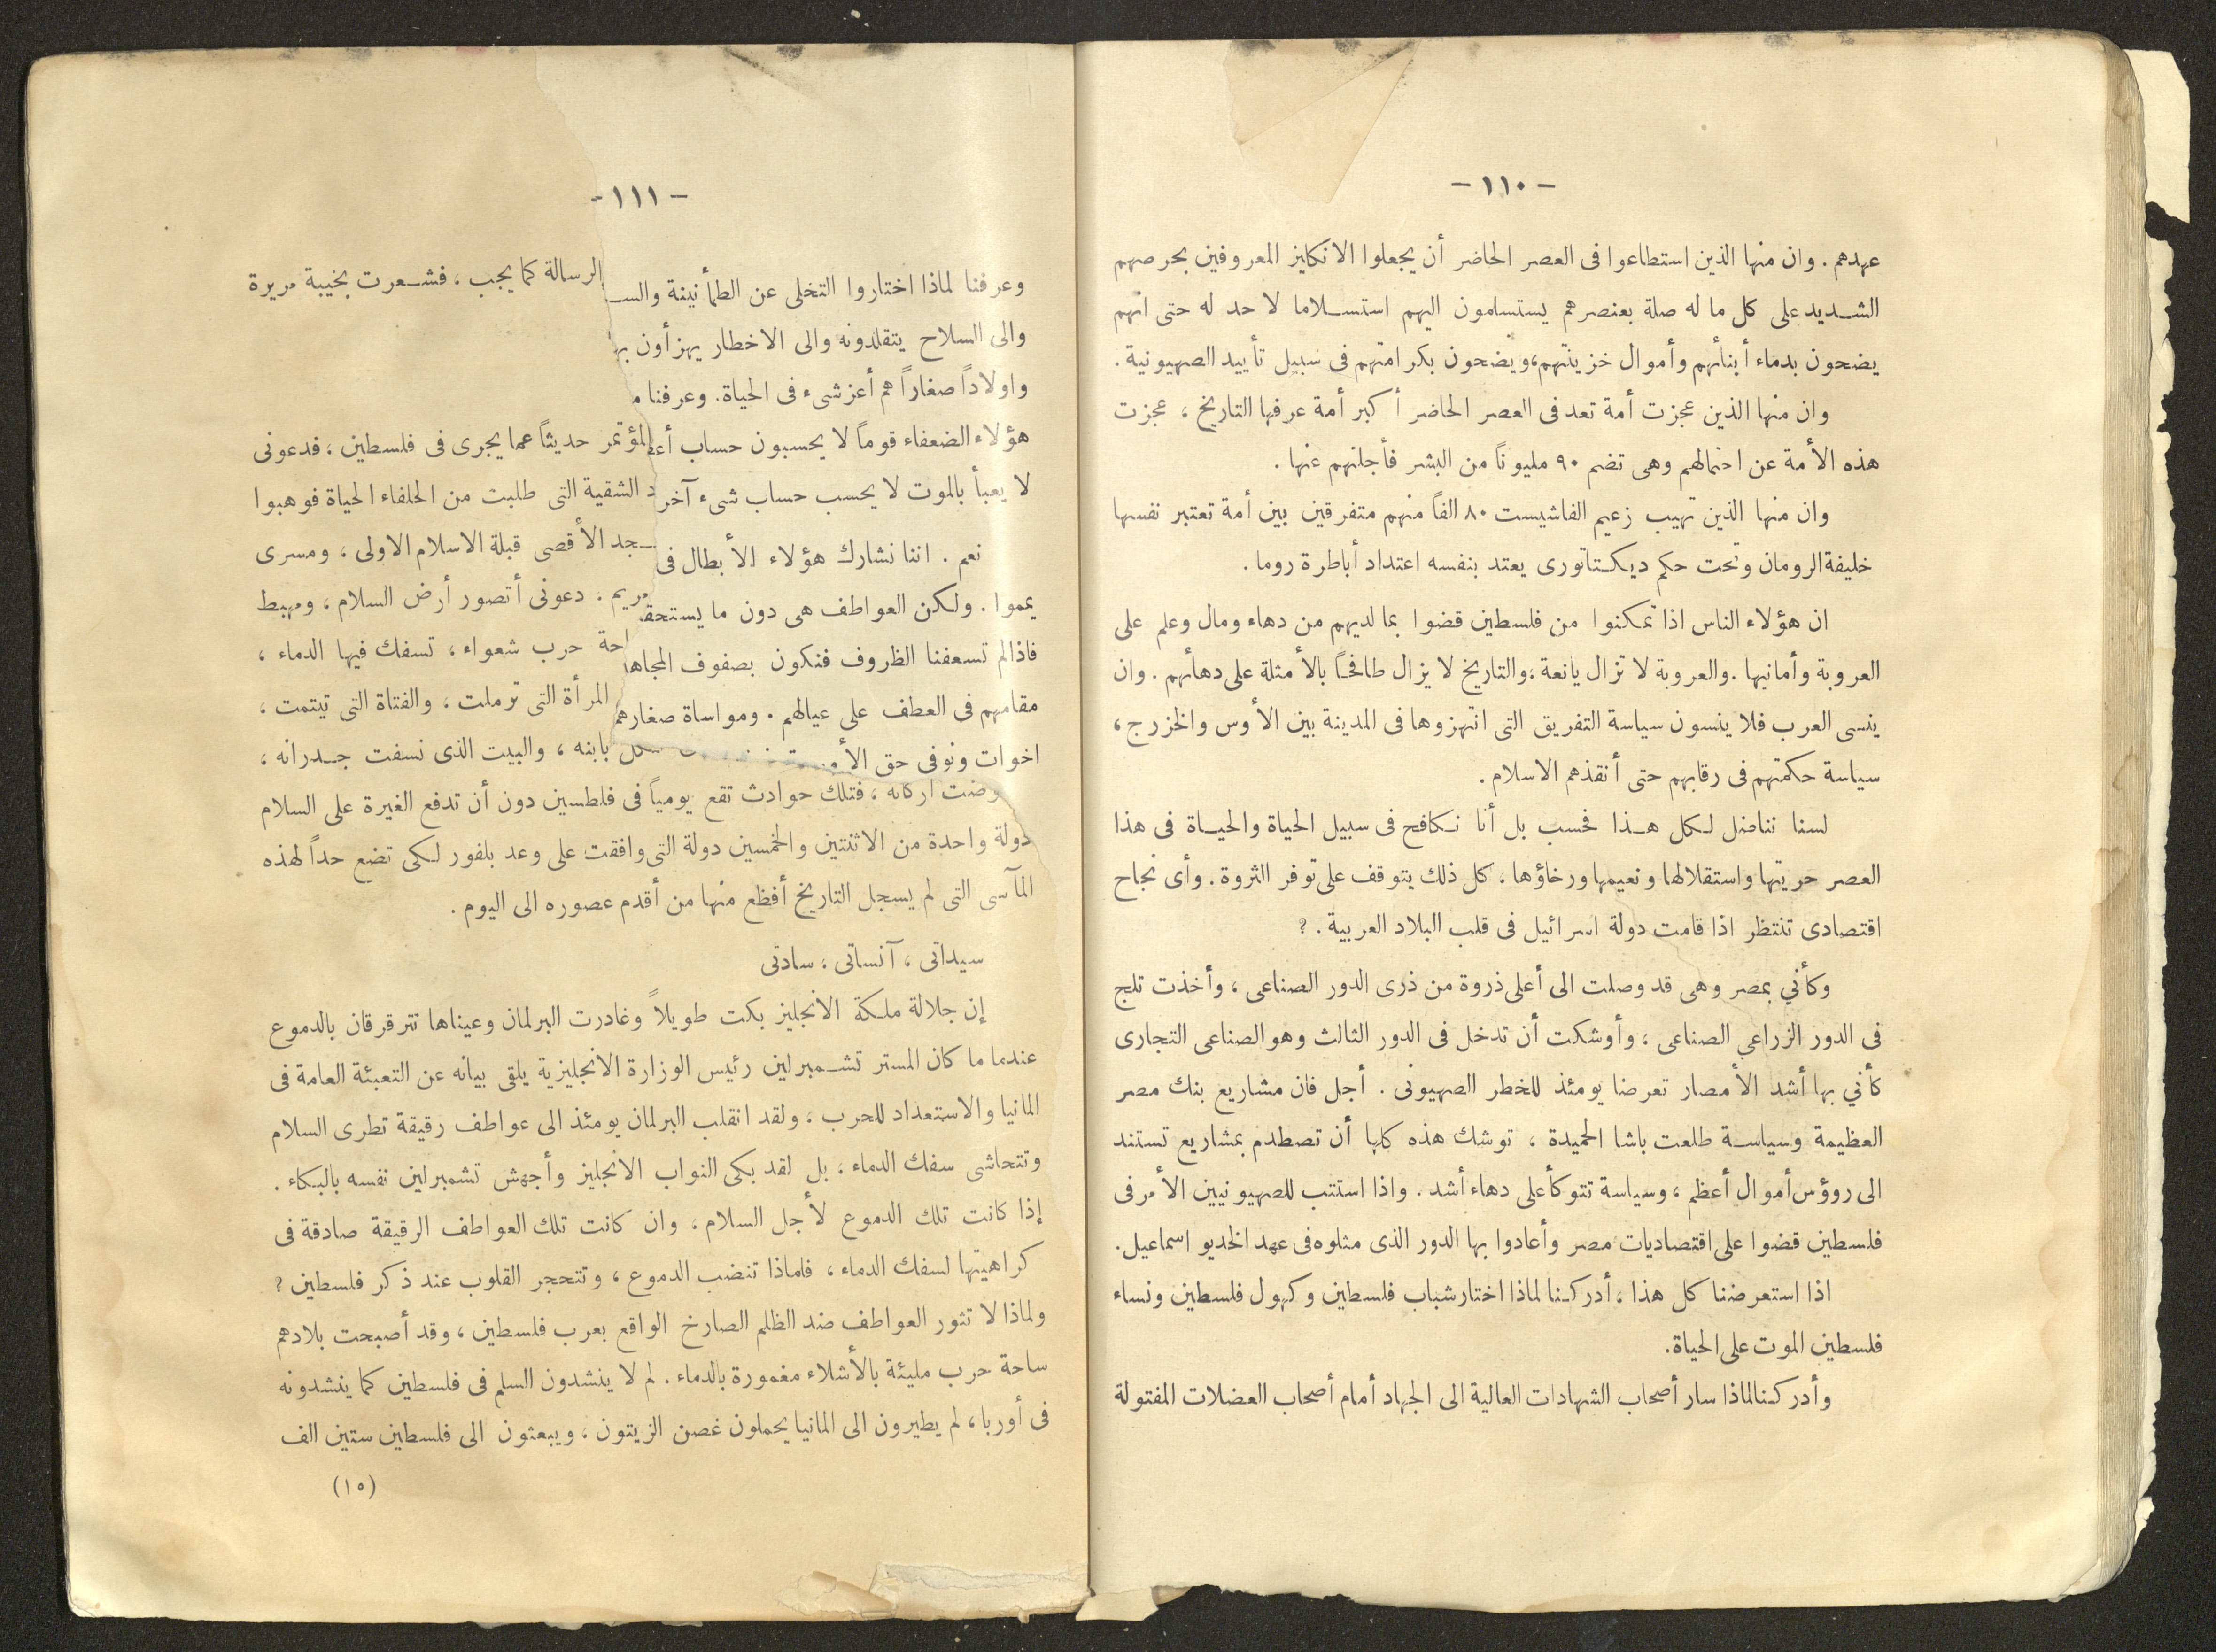 — ١١٠ —
عهدهم . وان منها الذين استطاعوا فى العصر الحاضر أن يجعلوا الانكليز المعروفين بحرصهم
الشديد على كل ما له صلة بعنصرهم يستسلمون اليهم استسلاما لا حد له حتى انهم
يضحون بدماء أبنائهم وأموال خزينتهم، ويضحون بكرامتهم فى سبيل تأييد الصهيونية .
وان منها الذين عجزت أمة تعد فى العصر الحاضر أكبر أمة عرفها التاريخ ، عجزت
هذه الأمة عن احتمالهم وهى تضم ٩٠ مليوناً من البشر فأجلتهم عنها .
وان منها الذين تهيب زعيم الفاشيست ٨٠ الفاً منهم متفرقين بين أمة تعتبر نفسها
خليفة الرومان وتحت حكم ديكتاتورى يعتد بنفسه اعتداد أباطرة روما .
ان هؤلاء الناس اذا تمكنوا من فلسطين قضوا بما لديهم من دهاء ومال وعلم على
العروبة وأمانيها . والعروبة لا تزال يانعة ، والتاريخ لا يزال طافحاً بالأمثلة على دهائهم . وان
ينسى العرب فلا ينسون سياسة التفريق التى انتهزوها فى المدينة بين الأوس والخزرج ،
سياسة حكمتهم فى رقابهم حتى أنقذهم الاسلام .
لسنا نناضل لكل هذا فحسب بل أنا نكافح فى سبيل الحياة والحياة فى هذا
العصر حريتها واستقلالها ونعيمها ورخاؤها ، كل ذلك يتوقف على توفر الثروة . وأى نجاح
اقتصادى تنتظر اذا قامت دولة اسرائيل فى قلب البلاد العربية . ؟
وكأني بمصر وهى قد وصلت الى أعلى ذروة من ذرى الدور الصناعى ، وأخذت تلج
فى الدور الزراعي الصناعى ، وأوشكت أن تدخل فى الدور الثالث وهو الصناعى التجارى
كأني بها أشد الأمصار تعرضا يومئذ للخطر الصهيونى . أجل فان مشاريع بنك مصر
العظيمة وسياسة طلعت باشا الحميدة ، توشك هذه كلها أن تصطدم بمشاريع تستند
الى رؤوس أموال أعظم ، وسياسة تتوكأ على دهاء أشد . واذا استتب للصهيونيين الأمر فى
فلسطين قضوا على اقتصاديات مصر وأعادوا بها الدور الذى مثلوه فى عهد الخديو اسماعيل .
اذا استعرضنا كل هذا ، أدركنا لماذا اختار شباب فلسطين وكهول فلسطين ونساء
فلسطين الموت على الحياة .
وأدركنا لماذا سار أصحاب الشهادات العالية الى الجهاد أمام أصحاب العضلات المفتولة
— ١١١ —
وعرفنا لماذا اختاروا التخلى عن الطمأنينة والسـ الرسالة كما يجب ، فشعرت بخيبة مريرة
والى السلاح يتقلدونه والى الاخطار يهزأون بـ
واولاداً صغاراً هم أعز شىء فى الحياة . وعرفنا
هؤلاء الضعفاء قوماً لا يحسبون حساب لمؤتمر حديثاً عما يجرى فى فلسطين ، فدعونى
لا يعبأ بالموت لا يحسب حساب شىء آخر الشقية التى طلبت من الحلفاء الحياة فوهبوا
نعم . اننا نشارك هؤلاء الأبطال فى ـجد الأقصى قبلة الاسلام الاولى ، ومسرى
يمموا . ولكن العواطف هى دون ما يستحقـ مريم . دعونى أتصور أرض السلام ، ومهبط
فاذا لم تسعفنا الظروف فنكون بصفوف المجاهـ احة حرب شعواء ، تسفك فيها الدماء ،
مقامهم فى العطف على عيالهم . ومواساة صغارهم المرأة التى ترملت ، والفتاة التى تيتمت ،
اخوات ونوفى حق بابنه ، والبيت الذى نسفت جدرانه ،
اركانه ، فتلك حوادث تقع يومياً فى فلطسين دون أن تدفع الغيرة على السلام
دولة واحدة من الاثنتين والخمسين دولة التى وافقت على وعد بلفور لكى تضع حداً لهذه
المآسى التى لم يسجل التاريخ أفظع منها من أقدم عصوره الى اليوم .
سيداتى ، آنساتى ، سادتى
إن جلالة ملكة الانجليز بكت طويلاً وغادرت البرلمان وعيناها تترقرقان بالدموع
عندما ما كان المستر تشمبرلين رئيس الوزارة الانجليزية يلقى بيانه عن التعبئة العامة فى
المانيا والاستعداد للحرب ، ولقد انقلب البرلمان يومئذ الى عواطف رقيقة تطرى السلام
وتتحاشى سفك الدماء ، بل لقد بكى النواب الانجليز وأجهش تشمبرلين نفسه بالبكاء .
إذا كانت تلك الدموع لأجل السلام ، وان كانت تلك العواطف الرقيقة صادقة فى
كراهيتها لسفك الدماء ، فلماذا تنضب الدموع ، وتتحجر القلوب عند ذكر فلسطين ؟
ولماذا لا تثور العواطف ضد الظلم الصارخ الواقع بعرب فلسطين ، وقد أصبحت بلادهم
ساحة حرب مليئة بالأشلاء مغمورة بالدماء . لم لا ينشدون السلم فى فلسطين كما ينشدونه
فى أوربا ، لم يطيرون الى المانيا يحملون غصن الزيتون ، ويبعثون الى فلسطين ستين الف
(١٥)